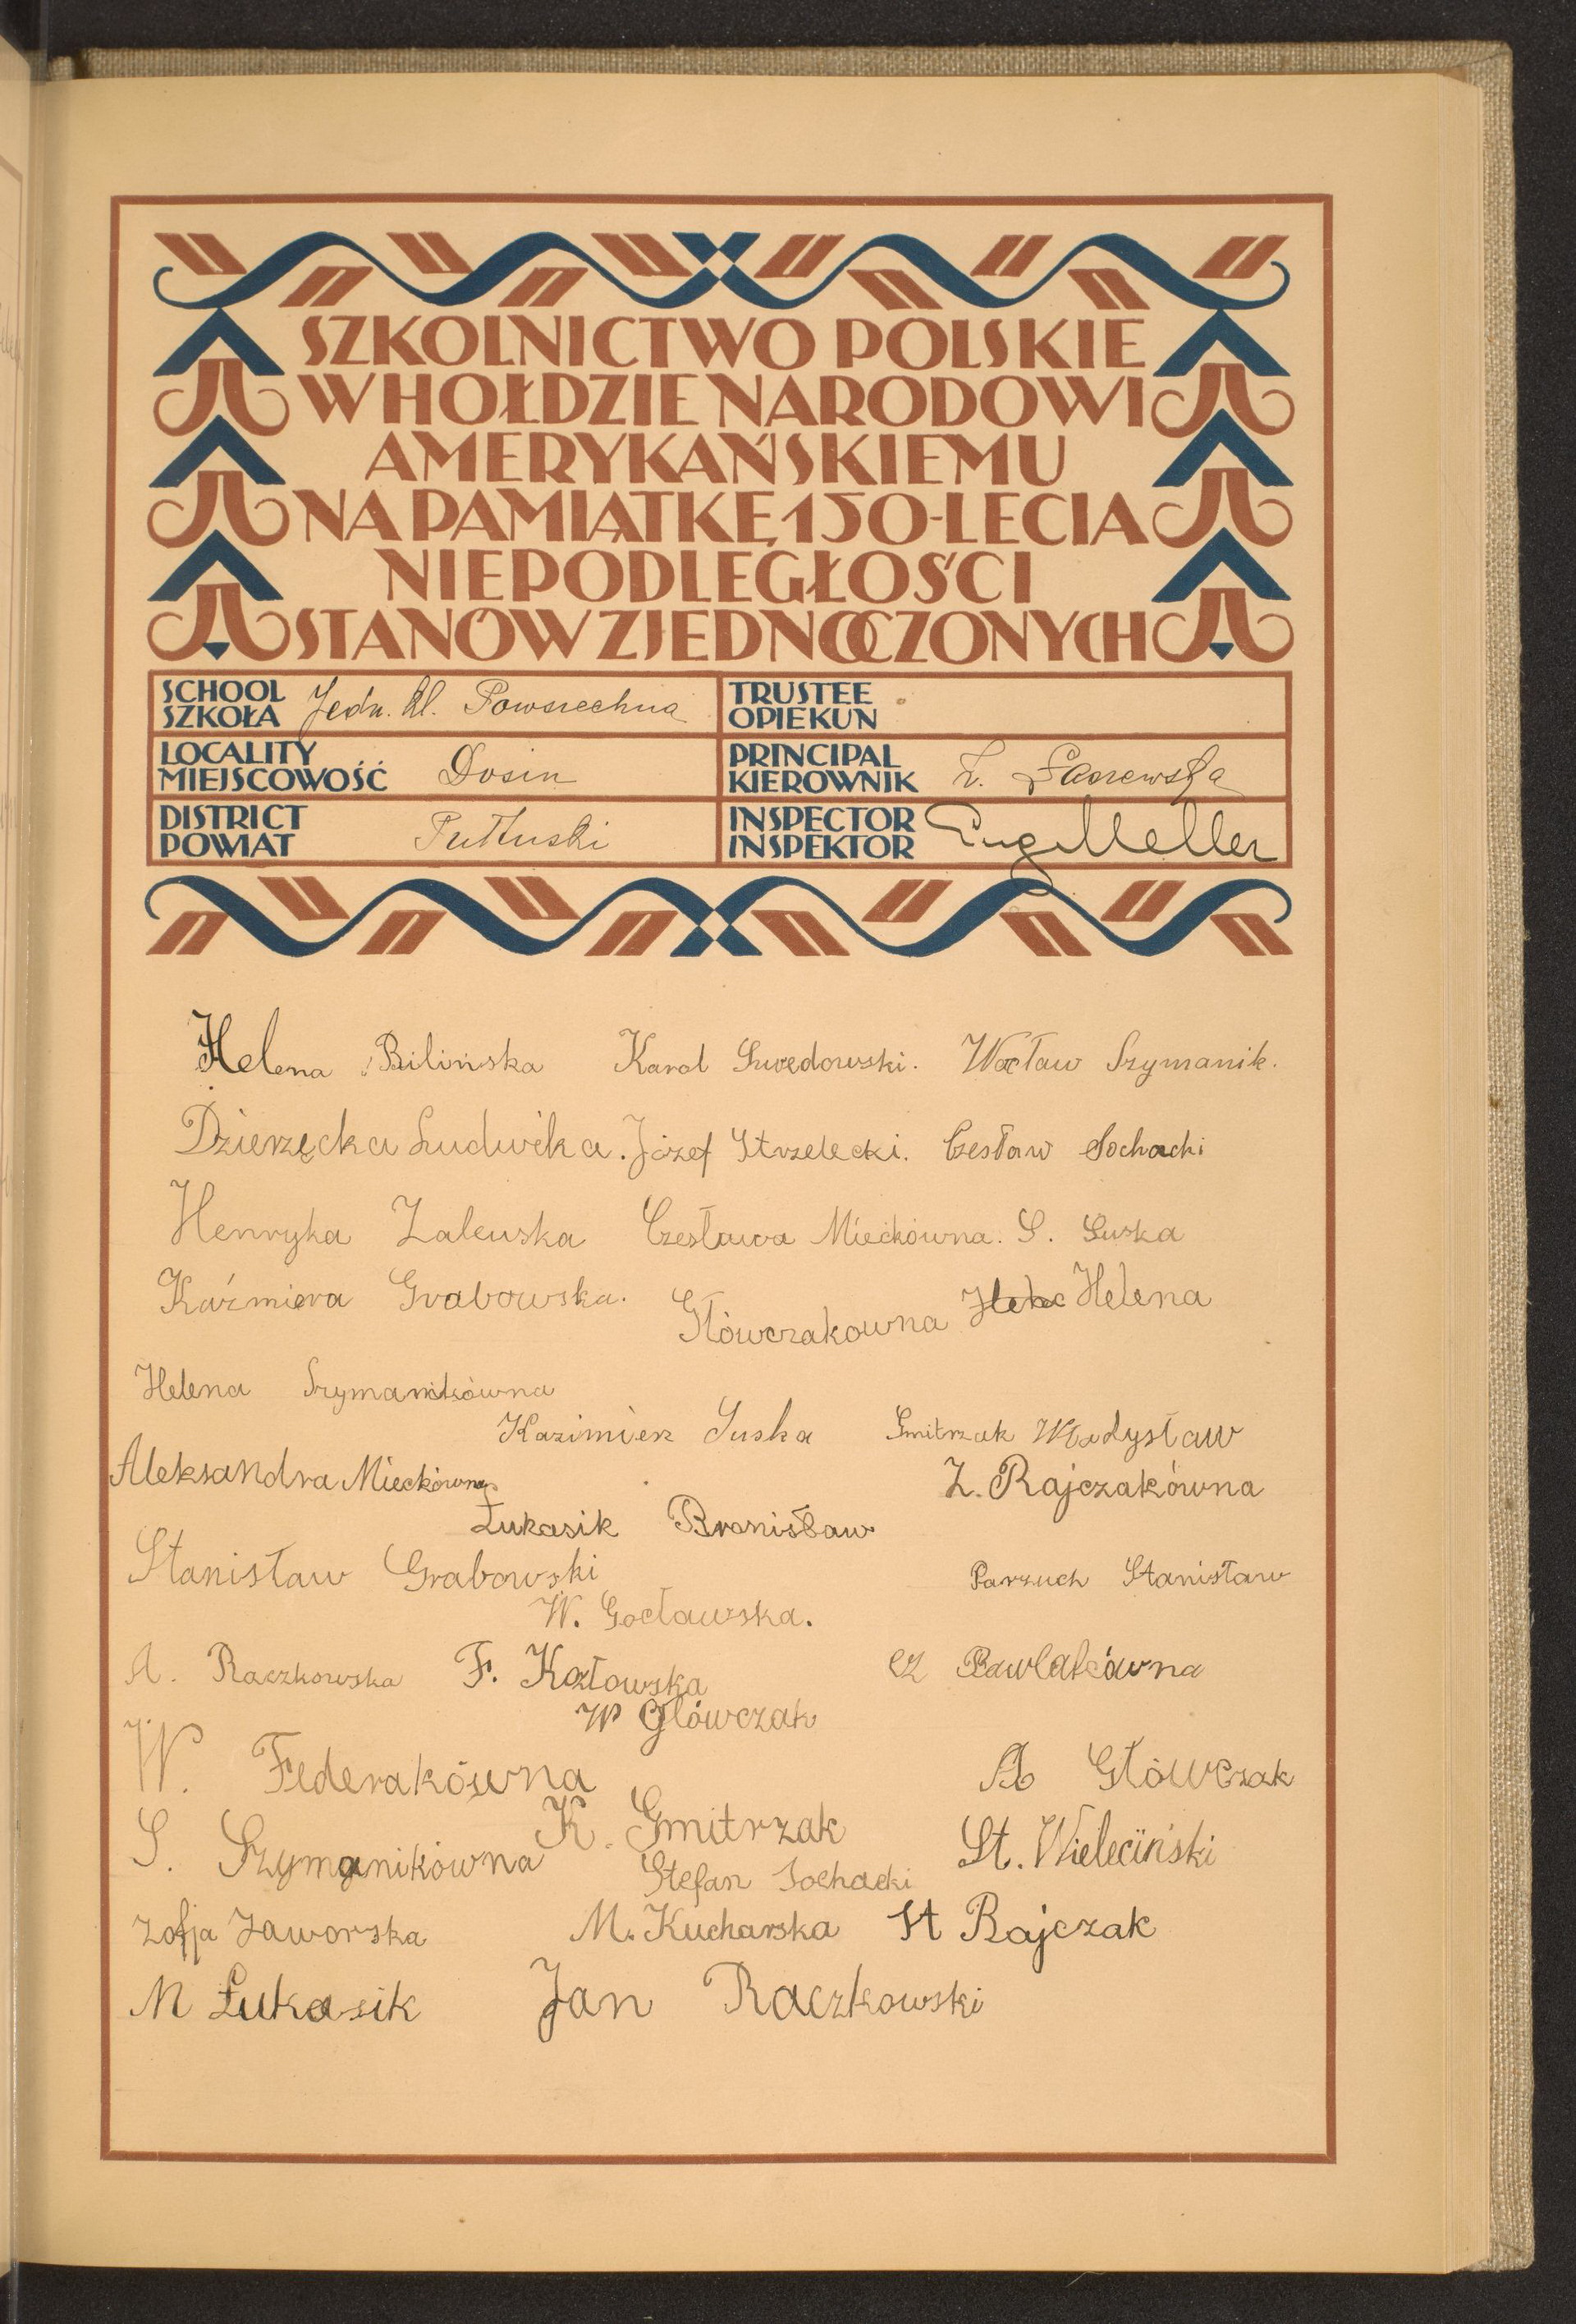 SZKOLNICTWO POLSKIE
W HOŁDZIE NARODOWI
AMERYKAŃSKIEMU
NA PAMIĄTKĘ 150-LECIA
NIEPODLEGŁOŚCI
STANÓW ZJEDNOCZONYCH
SCHOOL
SZKOŁA Jedn. kl. Powszechna
TRUSTEE
OPIEKUN
LOCALITY
MIEJSCOWOŚĆ Dosin
PRINCIPAL
KIEROWNIK
DISTRICT
POWIAT Pułtuski
INSPECTOR
INSPEKTOR Eug. Meller
Helena Bilińska Karol Swędowski. Wacław Szymanik.
Dzierzęcka Ludwika. Józef Strzelecki. Czesław Sochacki
Henryka Zalewska Czesława Miećkówna. S. Suska
Kaźmiera Grabowska. Główczakowna Helena
Helena Szymanikówna
Kazimierz Suska Gmitrzak Władysław
Aleksandra Miećkówna Z. Rajczakówna
Łukasik Bronisław
Stanisław Grabowski Parzuch Stanisław
W. Gocławska.
A. Raczkowska F. Kozłowska cz Pawlakówna
W Główczak
W. Federakówna A Główczak
K. Gmitrzak
S. Szymanikówna St. Wieleciński
Stefan Sochacki
Zofja Jaworska M. Kucharska St Rajczak
M Łukasik Jan Raczkowski